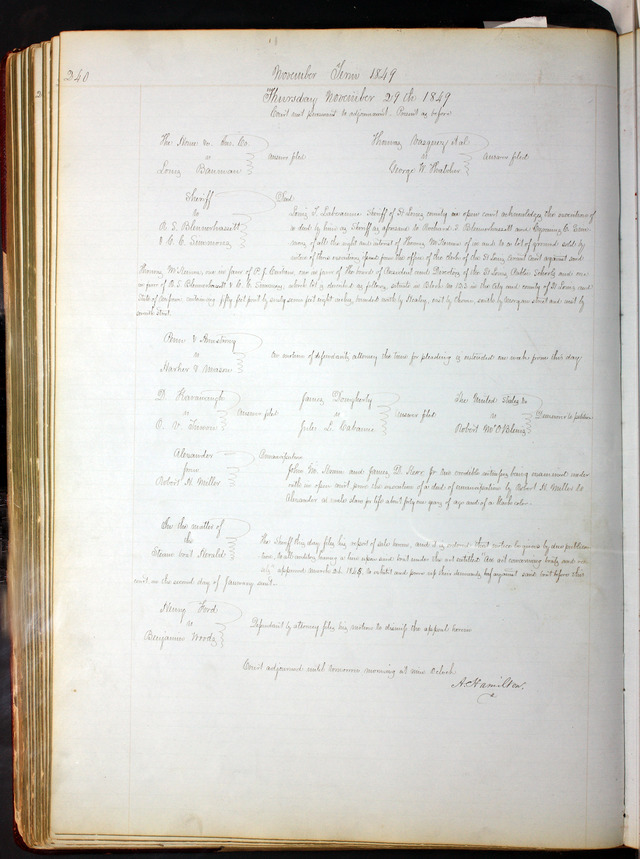 240
November Term 1849
Thursday November 29th 1849
Court met pursuant to adjournment. Present as before
The Home Ins. Co.
vs
Louis Bauman
answer filed
Thomas Vasquez et al
vs
George W. Thatcher
answer filed
Sheriff
to
R. S. Blennerhassett
& C. C. Simmons
Deed
Louis T. Labeaume Sheriff of St Louis county in open court acknowledges the execution of
a deed by him as Sheriff as aforesaid to Richard S. Blennerhassett and C. Sim
mons of all the right and interest of Thomas of in and to a lot of ground sold by
virtue of three executions issued from the office of the clerk of the St Louis Circuit court against said
Thomas one in favor of P. J. one in favor of the board of President and Directors of the St Louis Public Schools and one
in favor of R. S. Blennerhassett & C. C. Simmons, which lot is described as follows, situate in Block no 133 in the city and county of St Louis and
State of containing fifty feet front by sixty feet eight inches, bounded north by east by south by Morgan Street and west by
seventh street.
& Armstrong
vs
& Mason
On motion of defendants attorney the time for pleading is extended one week from this day
D. Kavanaugh
vs
O. V.
answer filed
James Dougherty
vs
Jules L. Cabanne
answer filed
The United States &c
vs
Robert McO'Blenis
Demurrer to petition
Alexander
from
Robert H. Miller
Emancipation
John and James D. two credible witnesses being examined under
oath in open court prove the execution of a deed of emancipation by Robert H. Miller to
Alexander a male slave for life about forty one years of age and of a black color.
In the matter of
the
Steam boat Herald
The Sheriff this day files his report of sale herein, and it is ordered that notice be given by due publica
tion, to all creditors having a lien upon said boat under the act entitled "An act concerning boats and ves
sels" approved March 24. 1845, to exhibit and prove up their demands against said boat before this
court on the second day of January next.
Henry Ford
vs
Benjamin Woods
Defendant by attorney files his motion to dismiss the appeal herein
Court adjourned until tomorrow morning at nine Oclock
A. Hamilton.